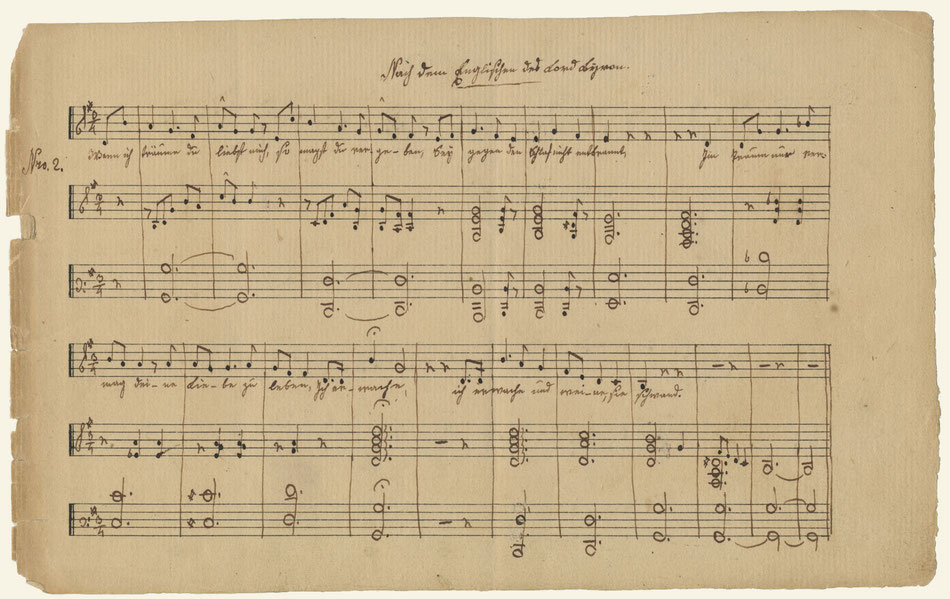 Nach dem Englischen des Lord Byron.
Nro. 2.
Wenn ich träume du liebst mich, so magst du ver-ge-ben, Sey gegen den Schlaf nicht entbrannt, Im Traume nur ver-
mag dei-ne Lie-be zu leben, Ich er-wache, ich erwache und wei-ne, sie schwand.